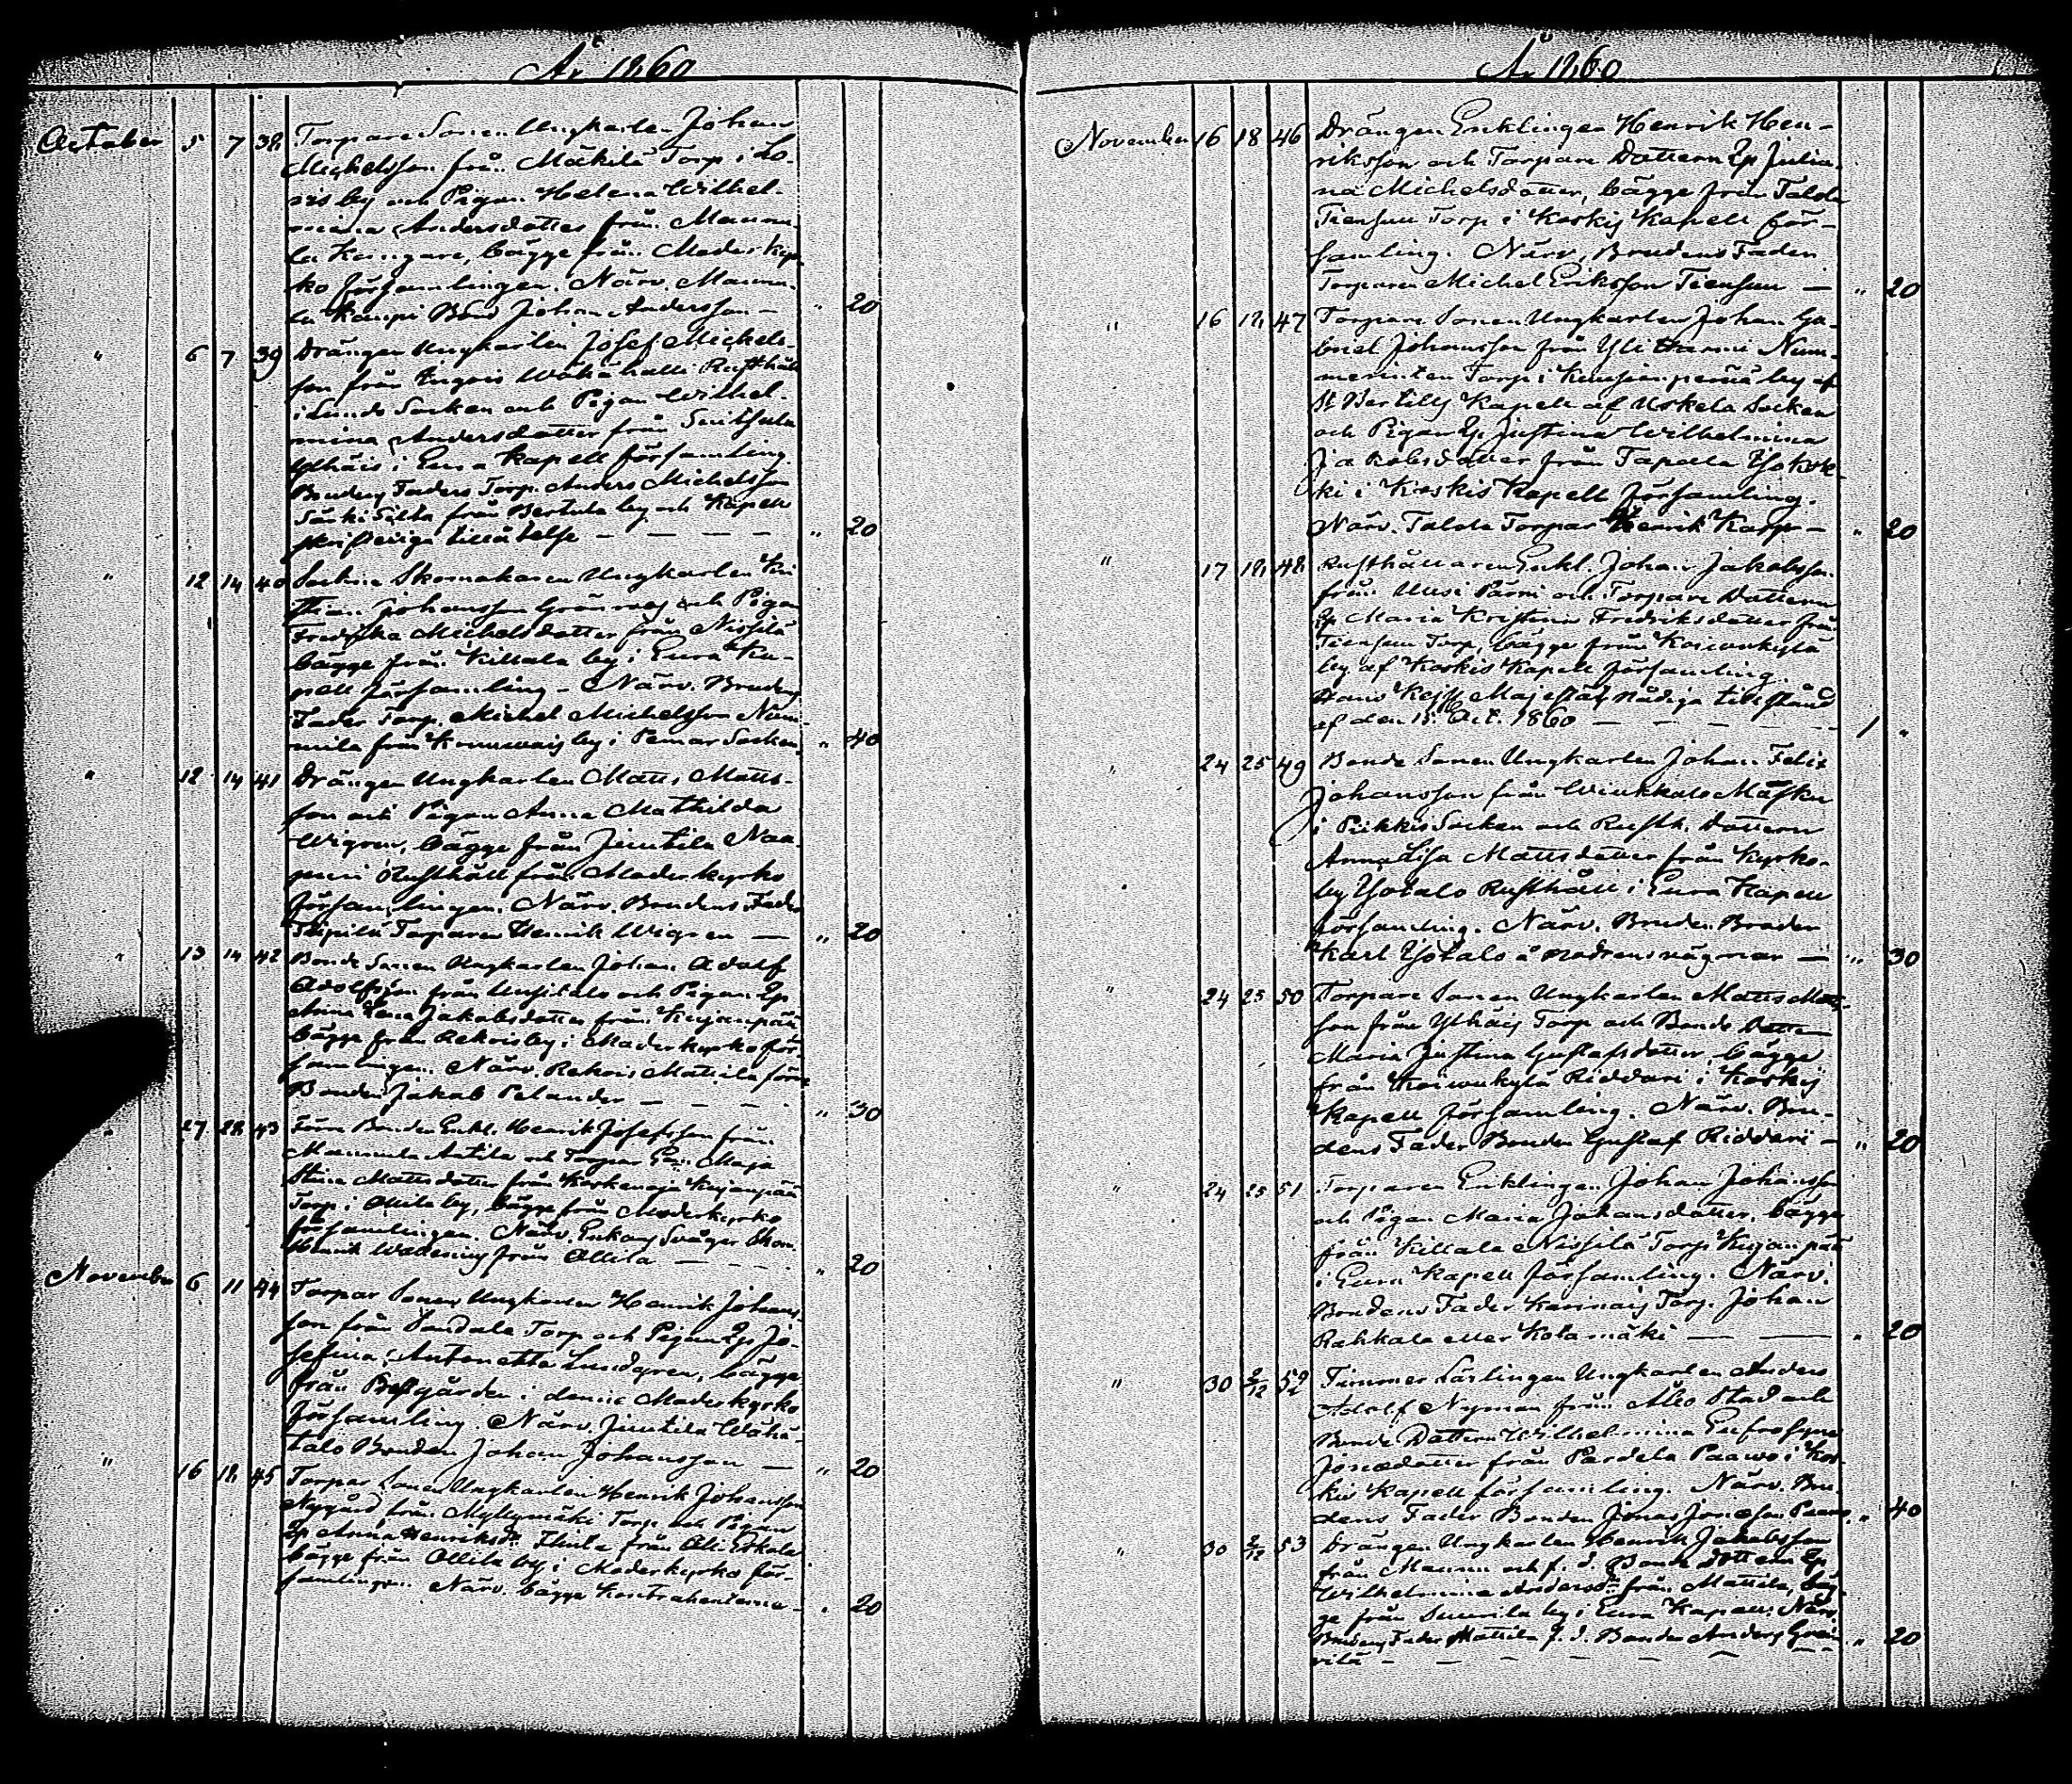 År 1860
October 5 7 38 Torpare Sonen Ungkarlen Johan
Michelsson från Mäkilä Torp i Lo-
vis by och Pigan Helena Wilhel-
mina Andersdotter från Maunu-
la Kangare, bägge från Moderkyr-
ko församlingen. Närv. Maunu-
la Kampi Bond Johan Andersson — " 20
" 6 7 39 Drängen Ungkarlen Josef Michels-
son från Wähä halli Rusthåll
i Lundo Socken och Pigan Wilhel-
mina Andersdotter från
Ylhäis i Eura Kapell församling.
Brudens Faders Torp. Anders Michelsson
Särki Silta från Bertula by och Kapell
skriftliga tillåtelse — — — — " 20
" 12 14 40 Sockne Skomakaren Ungkarlen Kri
stian Johansson Grönroos och Pigan
Fredrika Michelsdotter från Nissilä
bägge från Killala by i Eura Ka-
pell församling - Närv. Brudens
Fader Torp. Michel Michelsson Num-
mila från by i Pemar Socken " 40
" 12 14 41 Drängen Ungkarlen Matts Matts-
son och Pigan Anna Mathilda
Wigren, bägge från Juntila Naa-
puri Rusthåll från Moderkyrko
församlingen. Närv. Brudens Fader
Torparen Henrik Wigren — " 20
" 13 14 42 Bonde Sonen Ungkarlen Johan Adolf
Adolfsson från Uusitalo och Pigan Ep
Anna Lena Jakobsdotter från Kujanpää
bägge från Rekois by i Moderkyrko för-
samlingen. Närv. Rekois Mattila förra
Bonden Jakob Pelander — — — " 30
" 27 28 43 Förra Bonden Enkl. Henrik Josefsson från
Maunula Antila och Torpar Maja
Stina Mattsdotter från Kujanpää
Torp i Ollila by, bägge från Moderkyrko
församlingen. Närv. Enkans Svåger
Henrik från Ollila — — — " 20
November 6 11 44 Torpar Sonen Ungkarlen Henrik Johans-
son från Torp och Pigan Ep Jo-
sefina Antonetta Lundgren, bägge
från Prestgården i denna Moderkyrko
församling. Närv. Juntila Wähä-
talo Bonden Johan Johansson — " 20
" 16 18 45 Torpar Sonen Ungkarlen Henrik Johansson
Nygård från Myllymäki Torp och Pigan
Ep Anna Henriksdr från
bägge från Ollila by i Moderkyrko för-
samlingen. Närv. bägge Kontrahenterna — " 20
År 1860
November 16 18 46 Drängen Enklingen Henrik Hen-
riksson och Torpare Dottern Ep Julia-
na Michelsdotter, bägge från Talola
Tiensuu Torp i Koskis Kapell för-
samling. Närv. Brudens Fader
Torparen Michel Eriksson Tiensuu — " 20
" 16 18 47 Torpare Sonen Ungkarlen Johan Ga-
briel Johansson från Yli Num-
Torp i by af
St Bertills Kapell af Uskela Socken
och Pigan Ep Justina Wilhelmina
Jakobsdotter från Tapala
ki i Koskis Kapell församling.
Närv. Talola Torpar Henrik Karp — " 20
" 17 18 48 Rusthållaren Enkl. Johan Jakobsson
från Uusi Pärni och Torpare Dottern
Ep Maria Kristina Fredriksdotter från
Tiensuu Torp, bägge från Koivukylä
by af Koskis Kapell församling.
Hans Kejs. Majestäts nådiga tillstånd
af den 15 Oct. 1860 — — — — 1 "
" 24 25 49 Bonde Sonen Ungkarlen Johan Felix
Johansson från Wiukkalo Mäsku
i Pikkis Socken och Rusth. Dottern
Anna Lisa Mattsdotter från Kyrko-
by Isotalo Rusthåll i Eura Kapell
församling. Närv. Brudens Broder
Karl Isotalo å Modrens vägnar — " 30
" 24 25 50 Torpare Sonen Ungkarlen Matts Matts-
son från Ylhäis Torp och Bonde Dotter
Maria Justina Gustafsdotter, bägge
från Koiwukylä Riddari i Koskis
Kapell församling. Närv. Bru-
dens Fader Bonden Gustaf Riddari — " 20
" 24 25 51 Torparen Enklingen Johan Johansson
och Pigan Maria Johansdotter, bägge
från Killala Nissilä Torp Kujanpää
i Eura Kapell församling. Närv.
Brudens Fader Karinais Torp. Johan
Rahkala eller Kotamäki — — " 20
" 30 2/12 52 Timmer Lärlingen Ungkarlen Anders
Adolf Nyman från Åbo Stad och
Bonde Dottern Wilhelmina Eufrosyna
Jonasdotter från Pardela Paawo i Kos-
kis Kapell församling. Närv. Bru-
dens Fader Bonden Jonas Jonasson Paavo " 40
" 30 2/12 53 Drängen Ungkarlen Henrik Jakobsson
från och f. d. Bonde Dottern Ep
Wilhelmina Andersdr från Mattila, bäg-
ge från Suurila by i Eura Kapell. Närv.
Brudens Fader Mattila f. d. Bonden Anders " 20